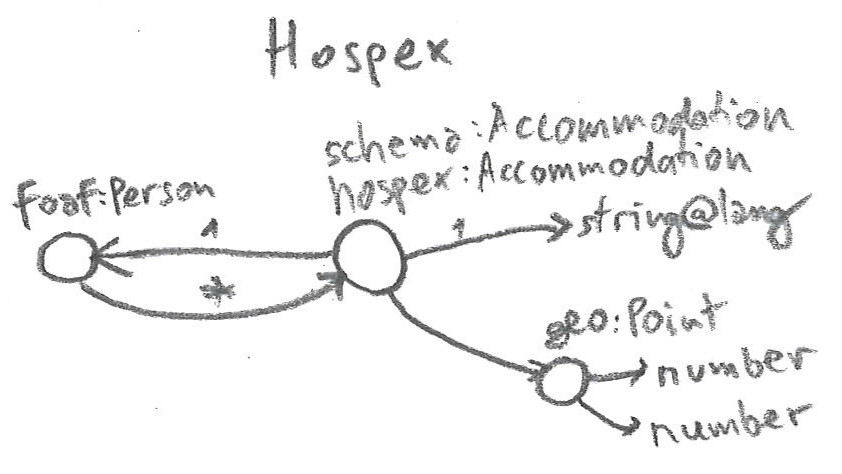 Hospex
schema:Accommodation
hospex:Accommodation
foaf:Person
1
1
string@lang
*
geo:Point
number
number